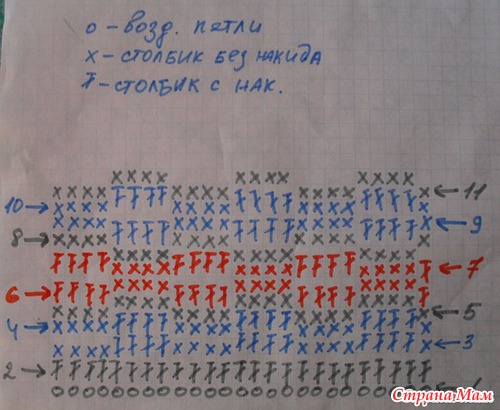 о - возд. петли
х - столбик без накида
Ŧ - столбик с нак.
11
10
9
8
7
6
5
4
3
2
Страна Мам